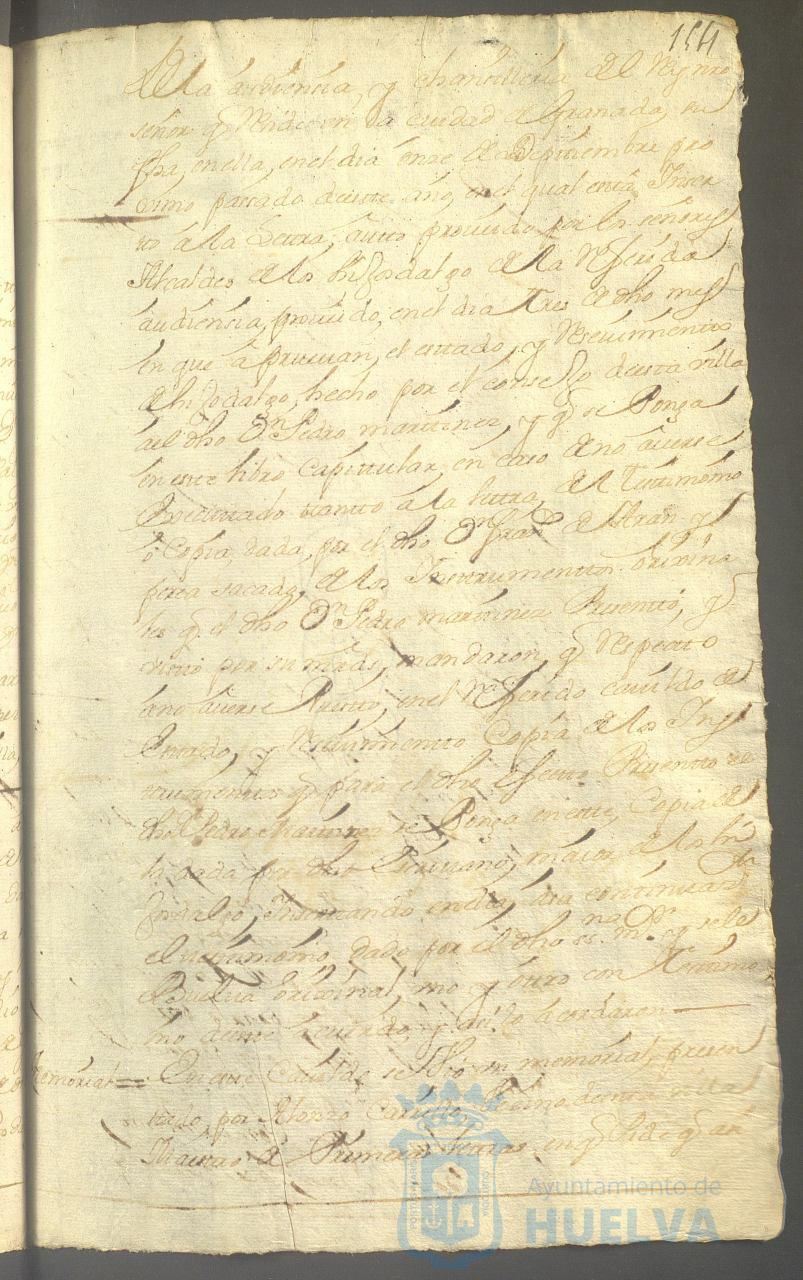 154
De la audiencia, y chansilleria del Rey nro
señor q Reside en la ciudad de Granada, su
fha, en ella, en el dia onze de septtiembre pro
ximo passado deeste año, en el qual esta Inser
tto à la Lettra, autto proveido por los señores
Alcaldes de los hijosdalgo de la Referida
audiensia, proveido, en el dia Tres de dho mes
en que àprueuan, el estado, y Reseuimientto
de hijodalgo, hecho por el consejo deesta villa
àel dho Dn Pedro marttinez, y q se Ponga
en este libro Capittular, en caso de no auerse
executtado tantto à la lettra, del Testtimonio
ò Copia, dada, por el dho Dn Fran de
perea sacada, de los Instrumenttos orixina
les q el dho Dn Pedro marttinez Presentto, y
visto por su mrds, mandaron, q Respecto
àno auerse Puestto, en el Referido cauildo de
Enttrado, y Reseuimientto Copia de los Ins
trumenttos q para el dho efectto Presentto
dho Dn Pedro Marttinez se Ponga en este, Copia de
la dada por dho Escriuano, maior de los hi
josdalgo, Insertando en el dia continuaz
el testtimonio, dado por el dho es. m. y se le
Buelua orixinal, uno y ottro con Testtimo
nio deestte acuerdo, y assi lo acordaron
Memorial = En estte Cauildo se vio un memorial, presen
ttado, por Alonso Carrillo, Vezino deesta villa
Maestro de Primeras lettras, en q Pide q
Ayuntamiento de
HUELVA